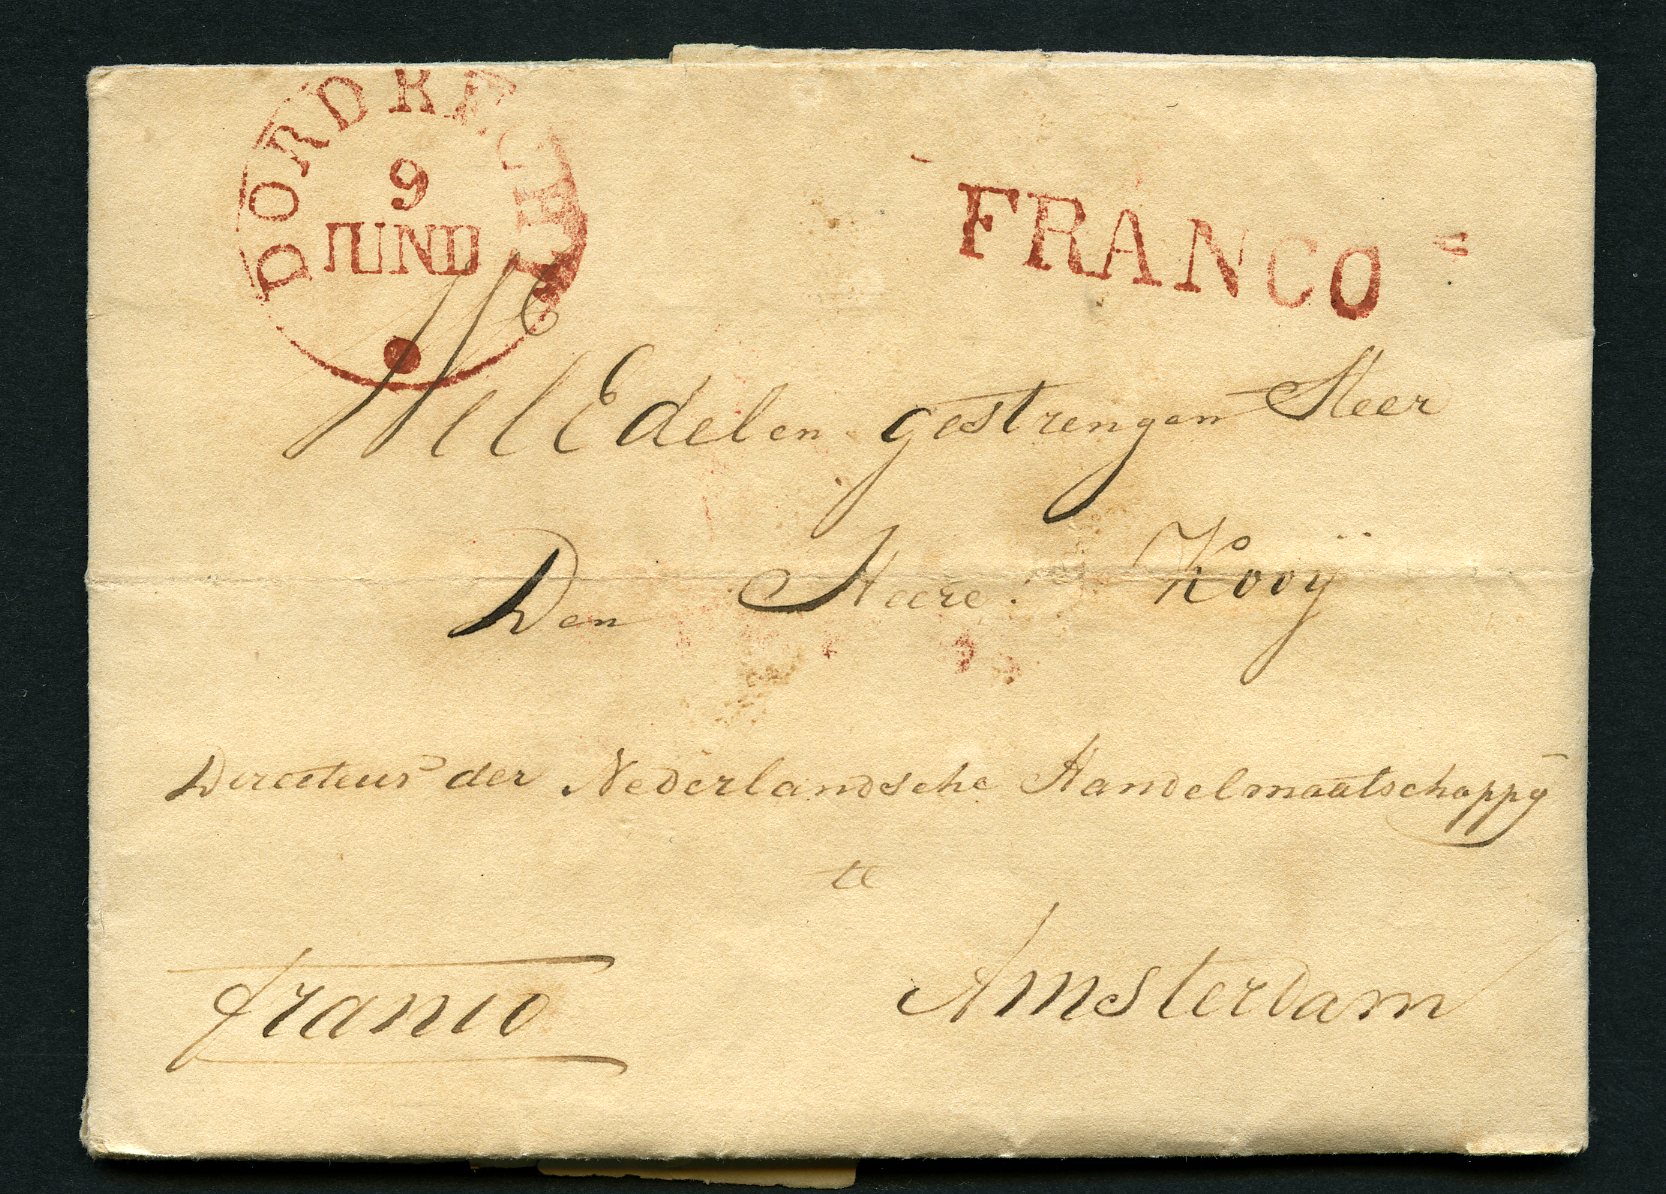 DORDRECHT
9
JUNIJ
FRANCO
WelEdelen gestrengen Heer
Den Heere Kooÿ
Directeur der Nederlandsche Handelmaatschappy
te
Amsterdam
franco